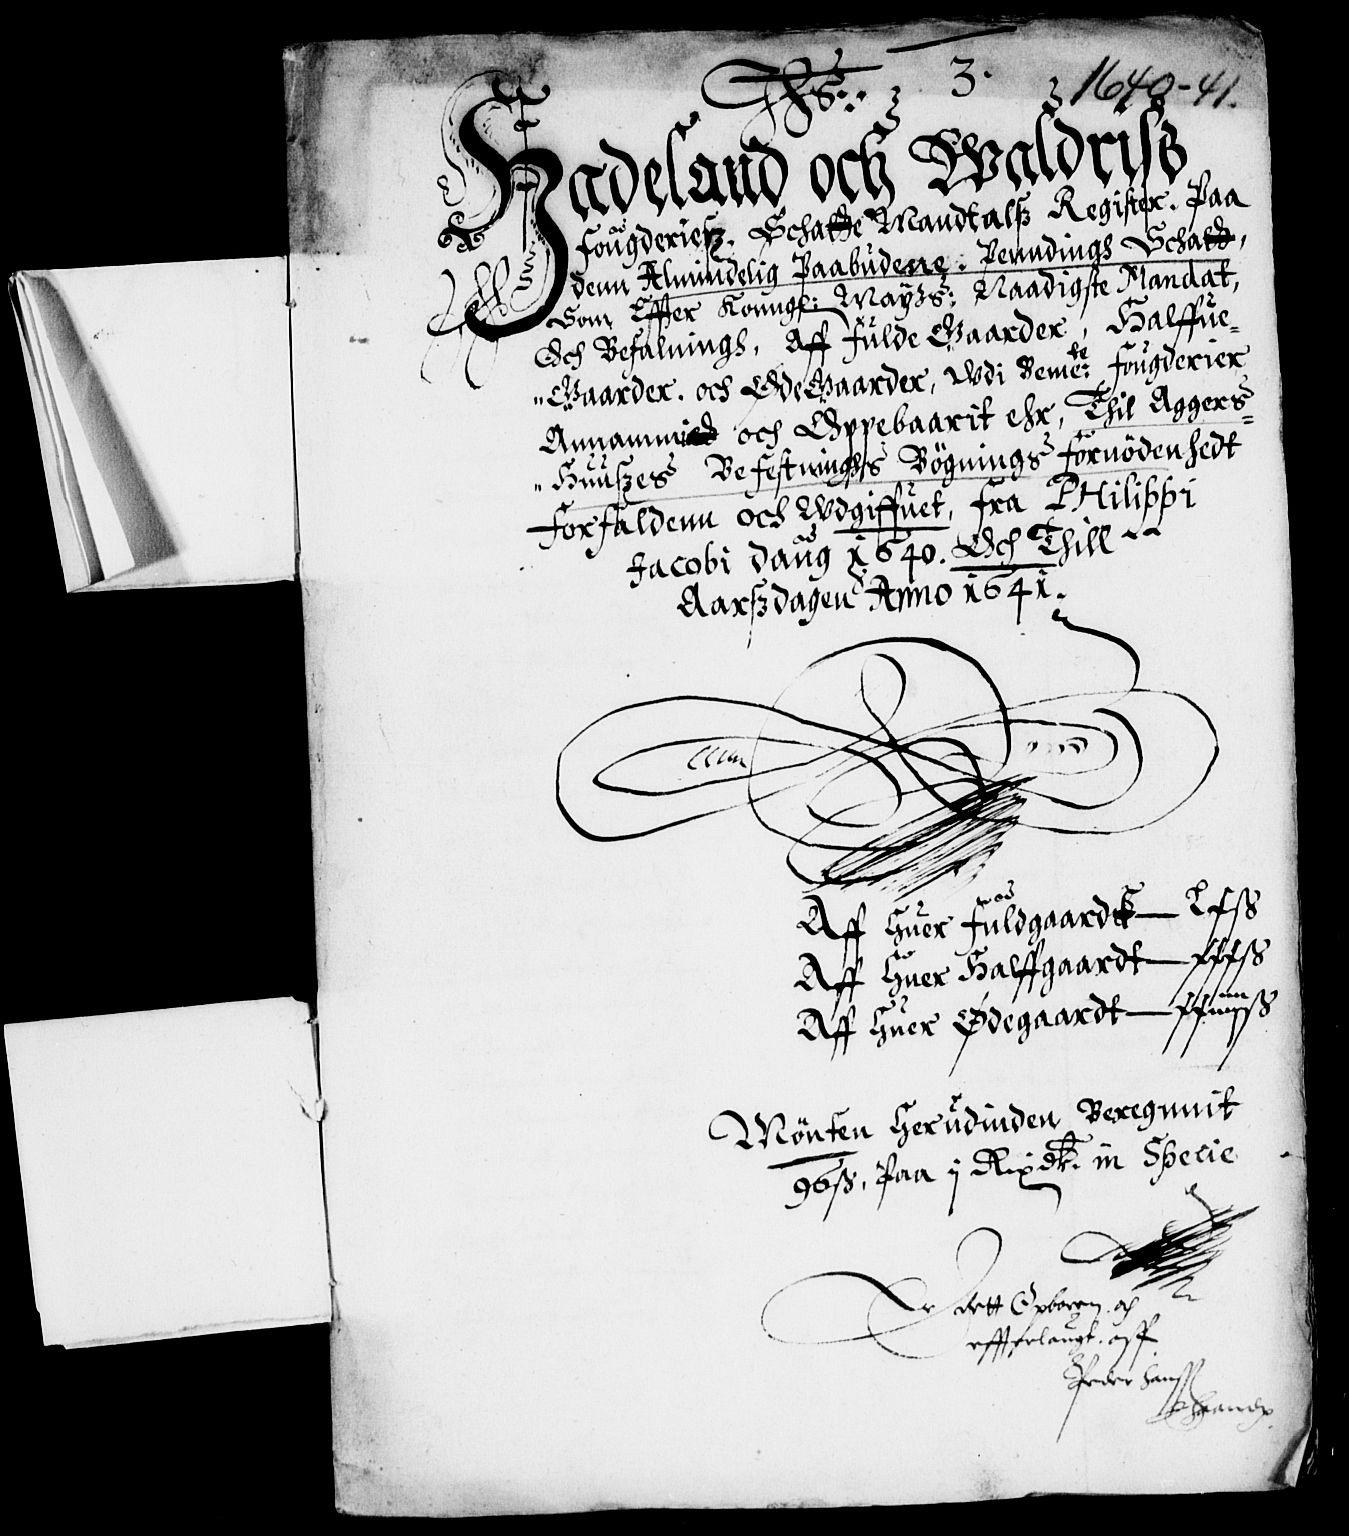 3. 1640-41.
Hadeland och Waldriß
fougderieß. Schatte Mandtalß Register. Paa
denn Almindelig Paabudene: Penndings Schatt,
Som Effter Konngl: Mayts: Naadigste Mandat,
Och Befalnings, Aff fulde Gaarder, Halffue-
"Gaarder. och ØdeGaarder, Udi Bemelte: fougderier
Annammit och Oppebaarit ehr, Thil Aggers-
"Huußes Befestnings Bögnings fornödenhedt
Forfaldenn och Udgiffuet, fra PHilippi
Jacobi daug 1640. Och Thill
Aarßdagen Anno 1641.
Aff huer fuldgaardt
Aff huer Halffgaardt
Aff huer Ødegaardt
Mönten herudinden Beregnnit
96ß, Paa j Rixdr. in Specie
Er dett Opboren och
effterlangt. aff
Peder hanss